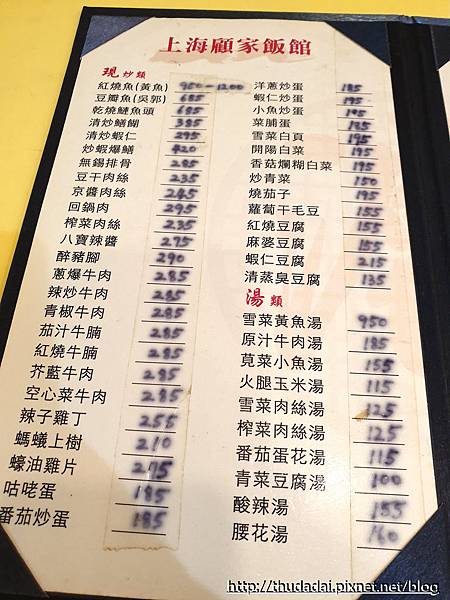 上海顧家飯館
現 炒類
紅燒魚(黃魚) 950-1200
豆瓣魚(吳郭) 685
乾燒鰱魚頭 685
清炒鱔餬 385
清炒蝦仁 295
炒蝦爆鱔 420
無錫排骨 285
豆干肉絲 235
京醬肉絲 245
回鍋肉 295
榨菜肉絲 235
八寶辣醬 275
醉豬腳 290
蔥爆牛肉 285
辣炒牛肉 285
青椒牛肉 285
茄汁牛腩 285
紅燒牛腩 285
芥藍牛肉 285
空心菜牛肉 285
辣子雞丁 255
螞蟻上樹 210
蠔油雞片 275
咕咾蛋 185
番茄炒蛋 185
洋蔥炒蛋 185
蝦仁炒蛋 195
小魚炒蛋 195
菜脯蛋 185
雪菜白頁 195
開陽白菜 195
香菇爛糊白菜 195
炒青菜 150
燒茄子 195
蘿蔔干毛豆 155
紅燒豆腐 155
麻婆豆腐 155
蝦仁豆腐 215
清蒸臭豆腐 135
湯 類
雪菜黃魚湯 950
原汁牛肉湯 185
莧菜小魚湯 155
火腿玉米湯 115
雪菜肉絲湯 125
榨菜肉絲湯 125
番茄蛋花湯 115
青菜豆腐湯 100
酸辣湯 155
腰花湯 160
http://thudadai.pixnet.net/blog